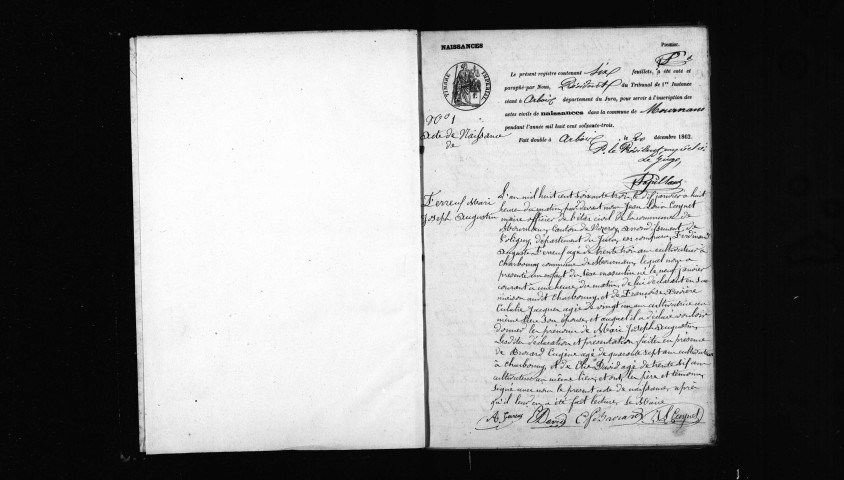 NAISSANCES
Premier
TIMBRE IMPERIAL
Le présent registre contenant six feuillets, a été coté et
paraphé par Nous, Président du Tribunal de 1re Instance
séant à Arbois département du Jura, pour servir à l'inscription des
actes civils de naissances dans la commune de Mournans
pendant l'année mil huit cent soixante-trois.
Fait double à Arbois, le 20 décembre 1862.
P. le Président
Le Juge,
No 1
Acte de Naissance
de
Ferreuf Marie
Joseph Augustin
L'an mil huit cent soixante trois le dix janvier à huit
heures du matin, par devant nous Jean Cuynet
maire officier de l'état civil de la commune de
Mournans, canton de Nozeroy, arrondissement de
Poligny, département du Jura, est comparu Ferdinand
Auguste Ferreuf agé de trente trois ans cultivateur à
Charbonny commune de Mournans, lequel nous a
présenté un enfant du sexe masculin né le neuf janvier
courant à une heure du matin, de lui déclarant en sa
maison audit Charbonny, et de Françoise Xavière
Eulalie Jacques agée de vingt ans cultivatrice au
même lieu son épouse, et auquel il a déclaré vouloir
donner les prénoms de Marie Joseph Augustin,
Lesdites déclaration et présentation faites en présence
de Brocard Eugène agé de quarante sept ans cultivateur
à Charbonny, et de David agé de trente dix ans
cultivateur au même lieu, et ont, les père et témoins
signé avec nous le présent acte de naissance après
qu'il leur en a été fait lecture. Le Maire
David Brocard Cuynet